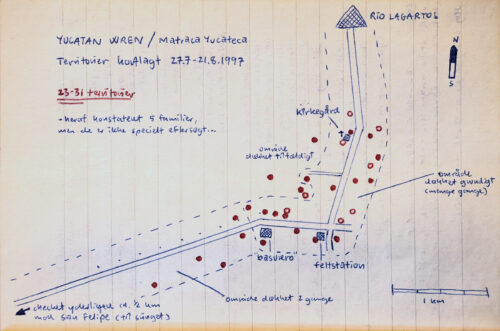 YUCATAN WREN / Matraca Yucateca
Territorier kortlagt 27.7-21.8.1997
23-31 territorier
- heraf konstateret 5 familier,
men de er ikke specielt eftersøgt...
RÍO LAGARTOS
N
S
kirkegård
område
dækket tilfældigt
område
dækket grundigt
(mange gange)
basurero
feltstation
område dækket 2 gange
checket yderligere ca. ½ km
mod San Felipe (til sunget)
1 km